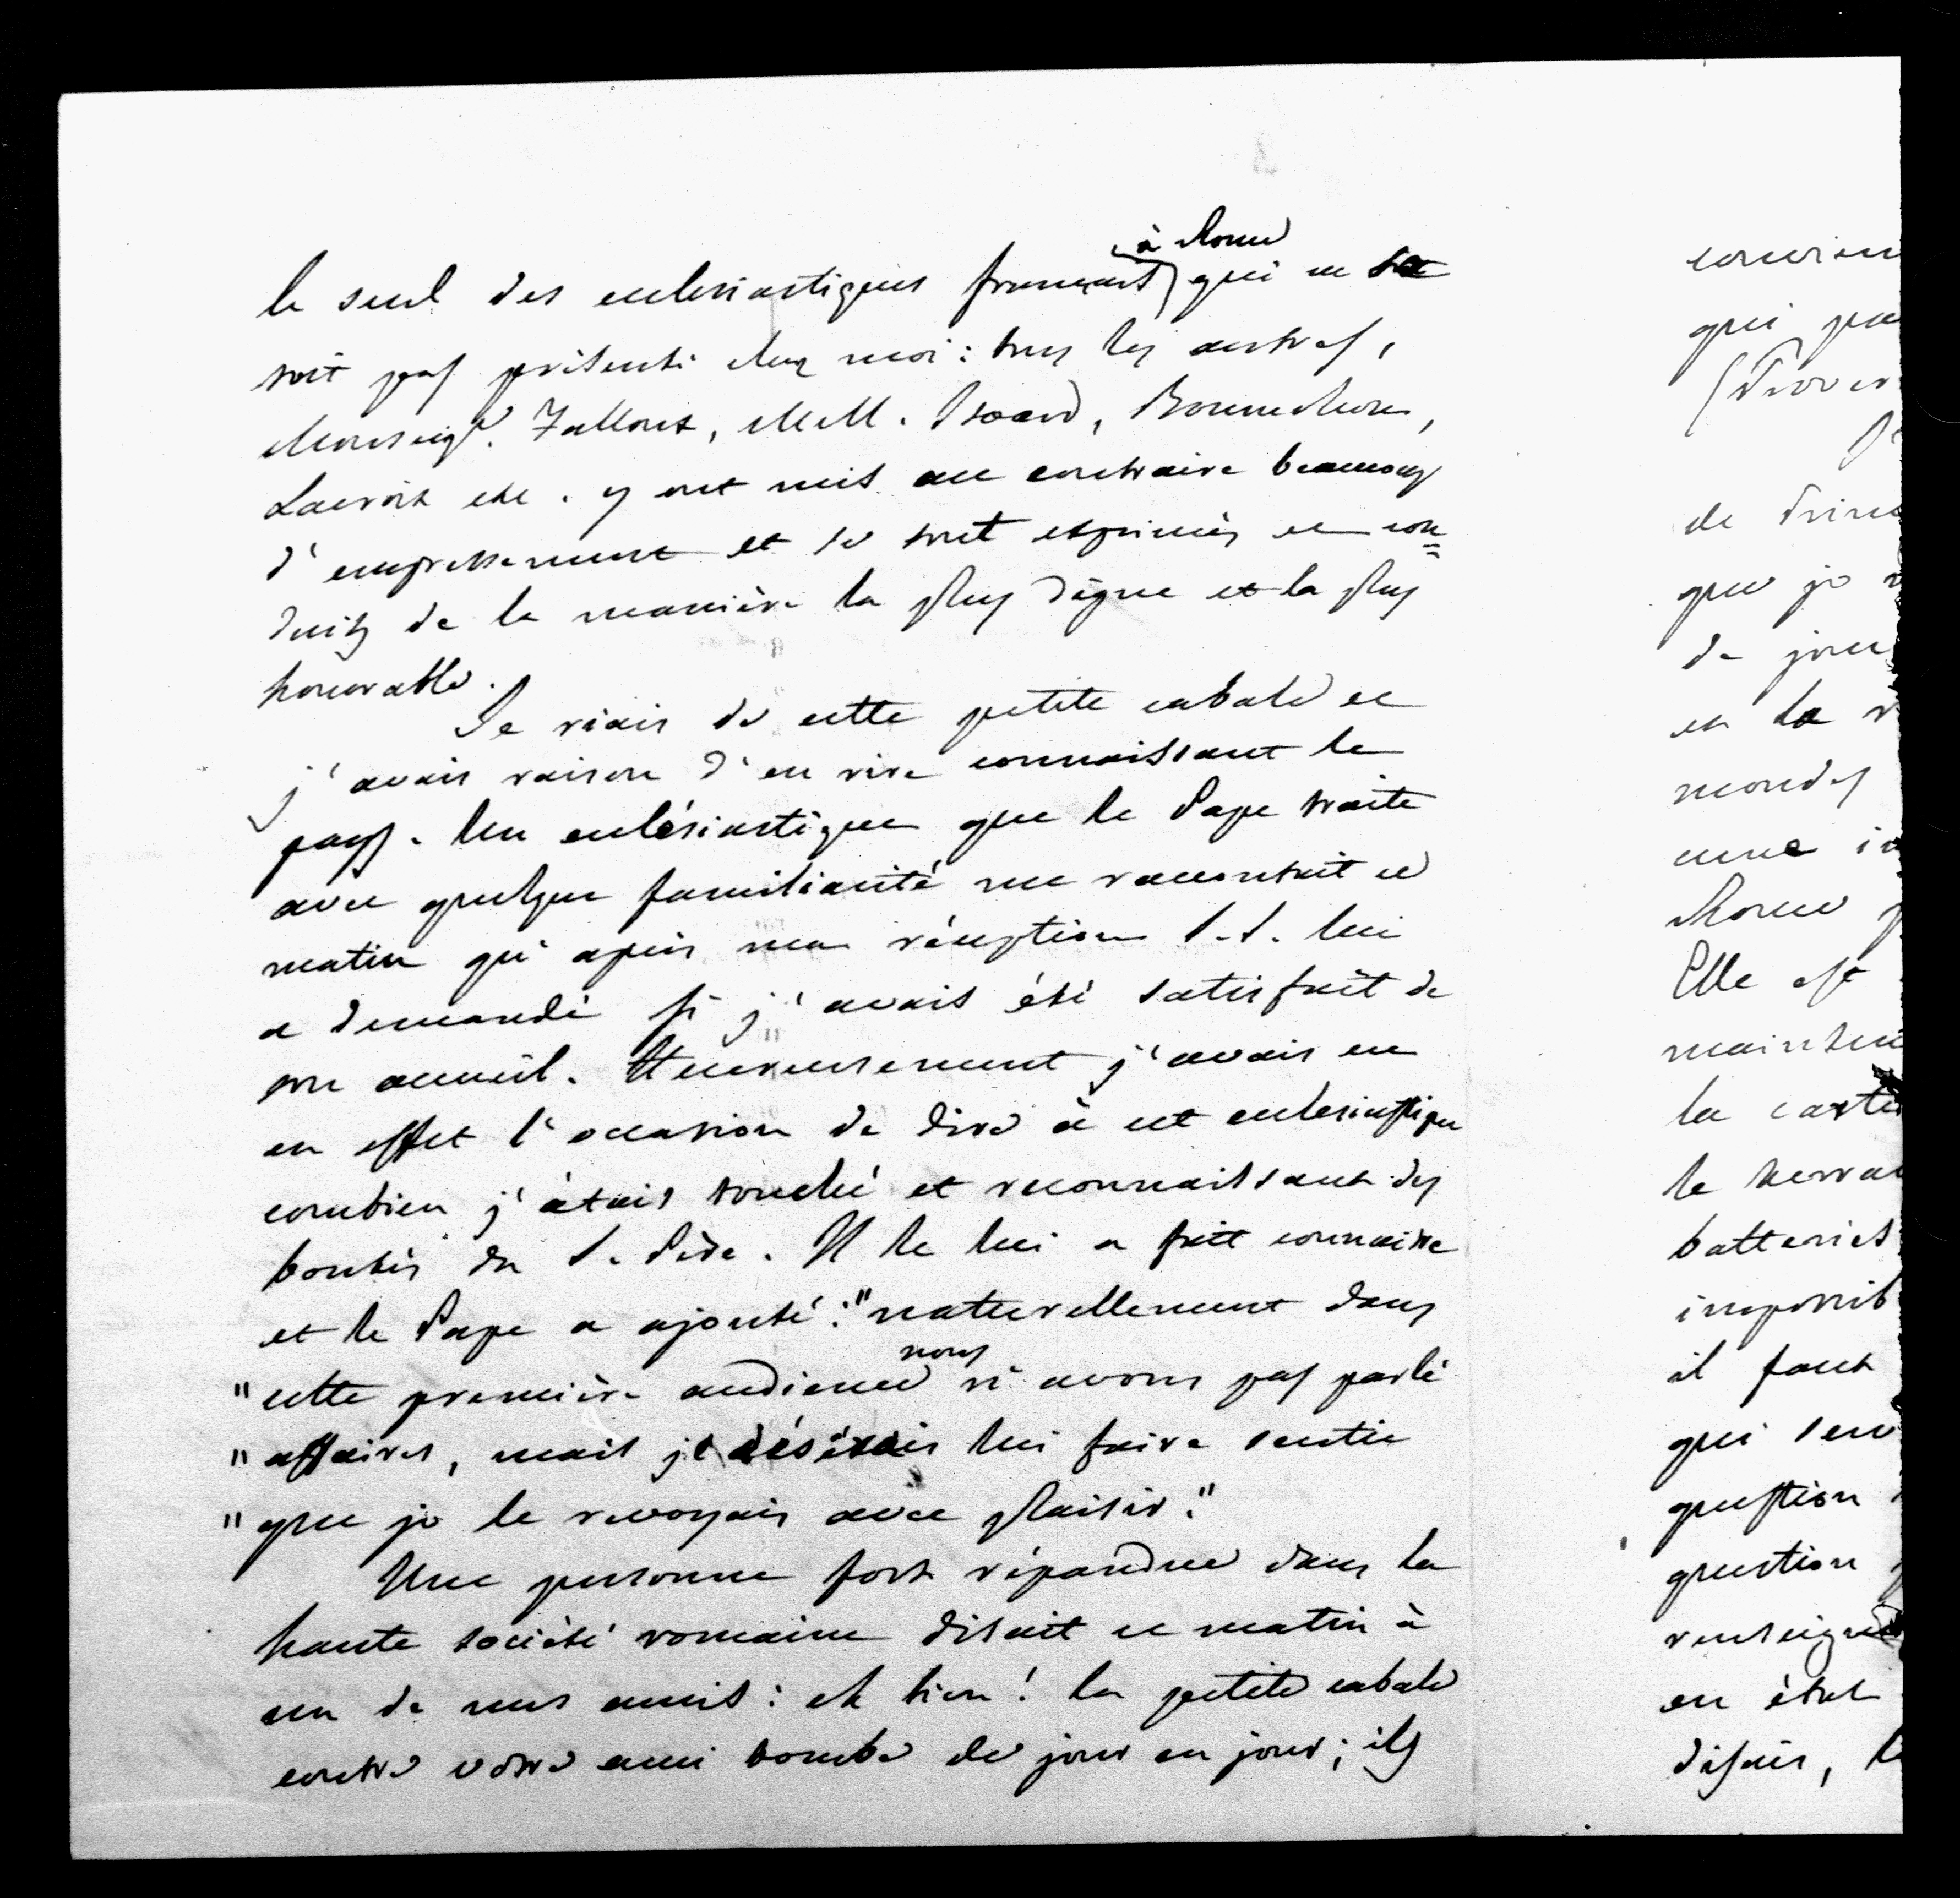 le seul des ecclesiastiques français à Rome qui ne se
soit pas présenté chez moi : tous les autres,
Monseigr. Falloux, MM. Isoard, Bonnechose,
Lacroix etc. y ont mis au contraire beaucoup
d'empressement et se sont exprimés et con=
duits de la manière la plus digne et la plus
honorable.
Je riais de cette petite cabale et
j'avais raison d'en rire connaissant le
pays. Un ecclésiastique que le Pape traite
avec quelque familiarité me racontait ce
matin qu'après ma réception S.S. lui
a demandé si j'avais été satisfait de
son accueil. Heureusement j'avais eu
en effet l'occasion de dire à cet ecclesiastique
combien j'étais touché et reconnaissant des
bontés du S. Père. Il le lui a fait connaitre
et le Pape a ajouté : "naturellement dans
"cette première audience nous n'avons pas parlé
"affaires, mais je désirais lui faire sentir
"que je le revoyais avec plaisir."
Une personne fort répandue dans la
haute société romaine disait ce matin à
un de mes amis : eh bien ! la petite cabale
contre votre ami tombe de jour en jour ; ils
qui
de
que je
de
en la
mondes
une
Rome
Elle est
la
le
batteries
il faut
qui
question
question
en état
disais,